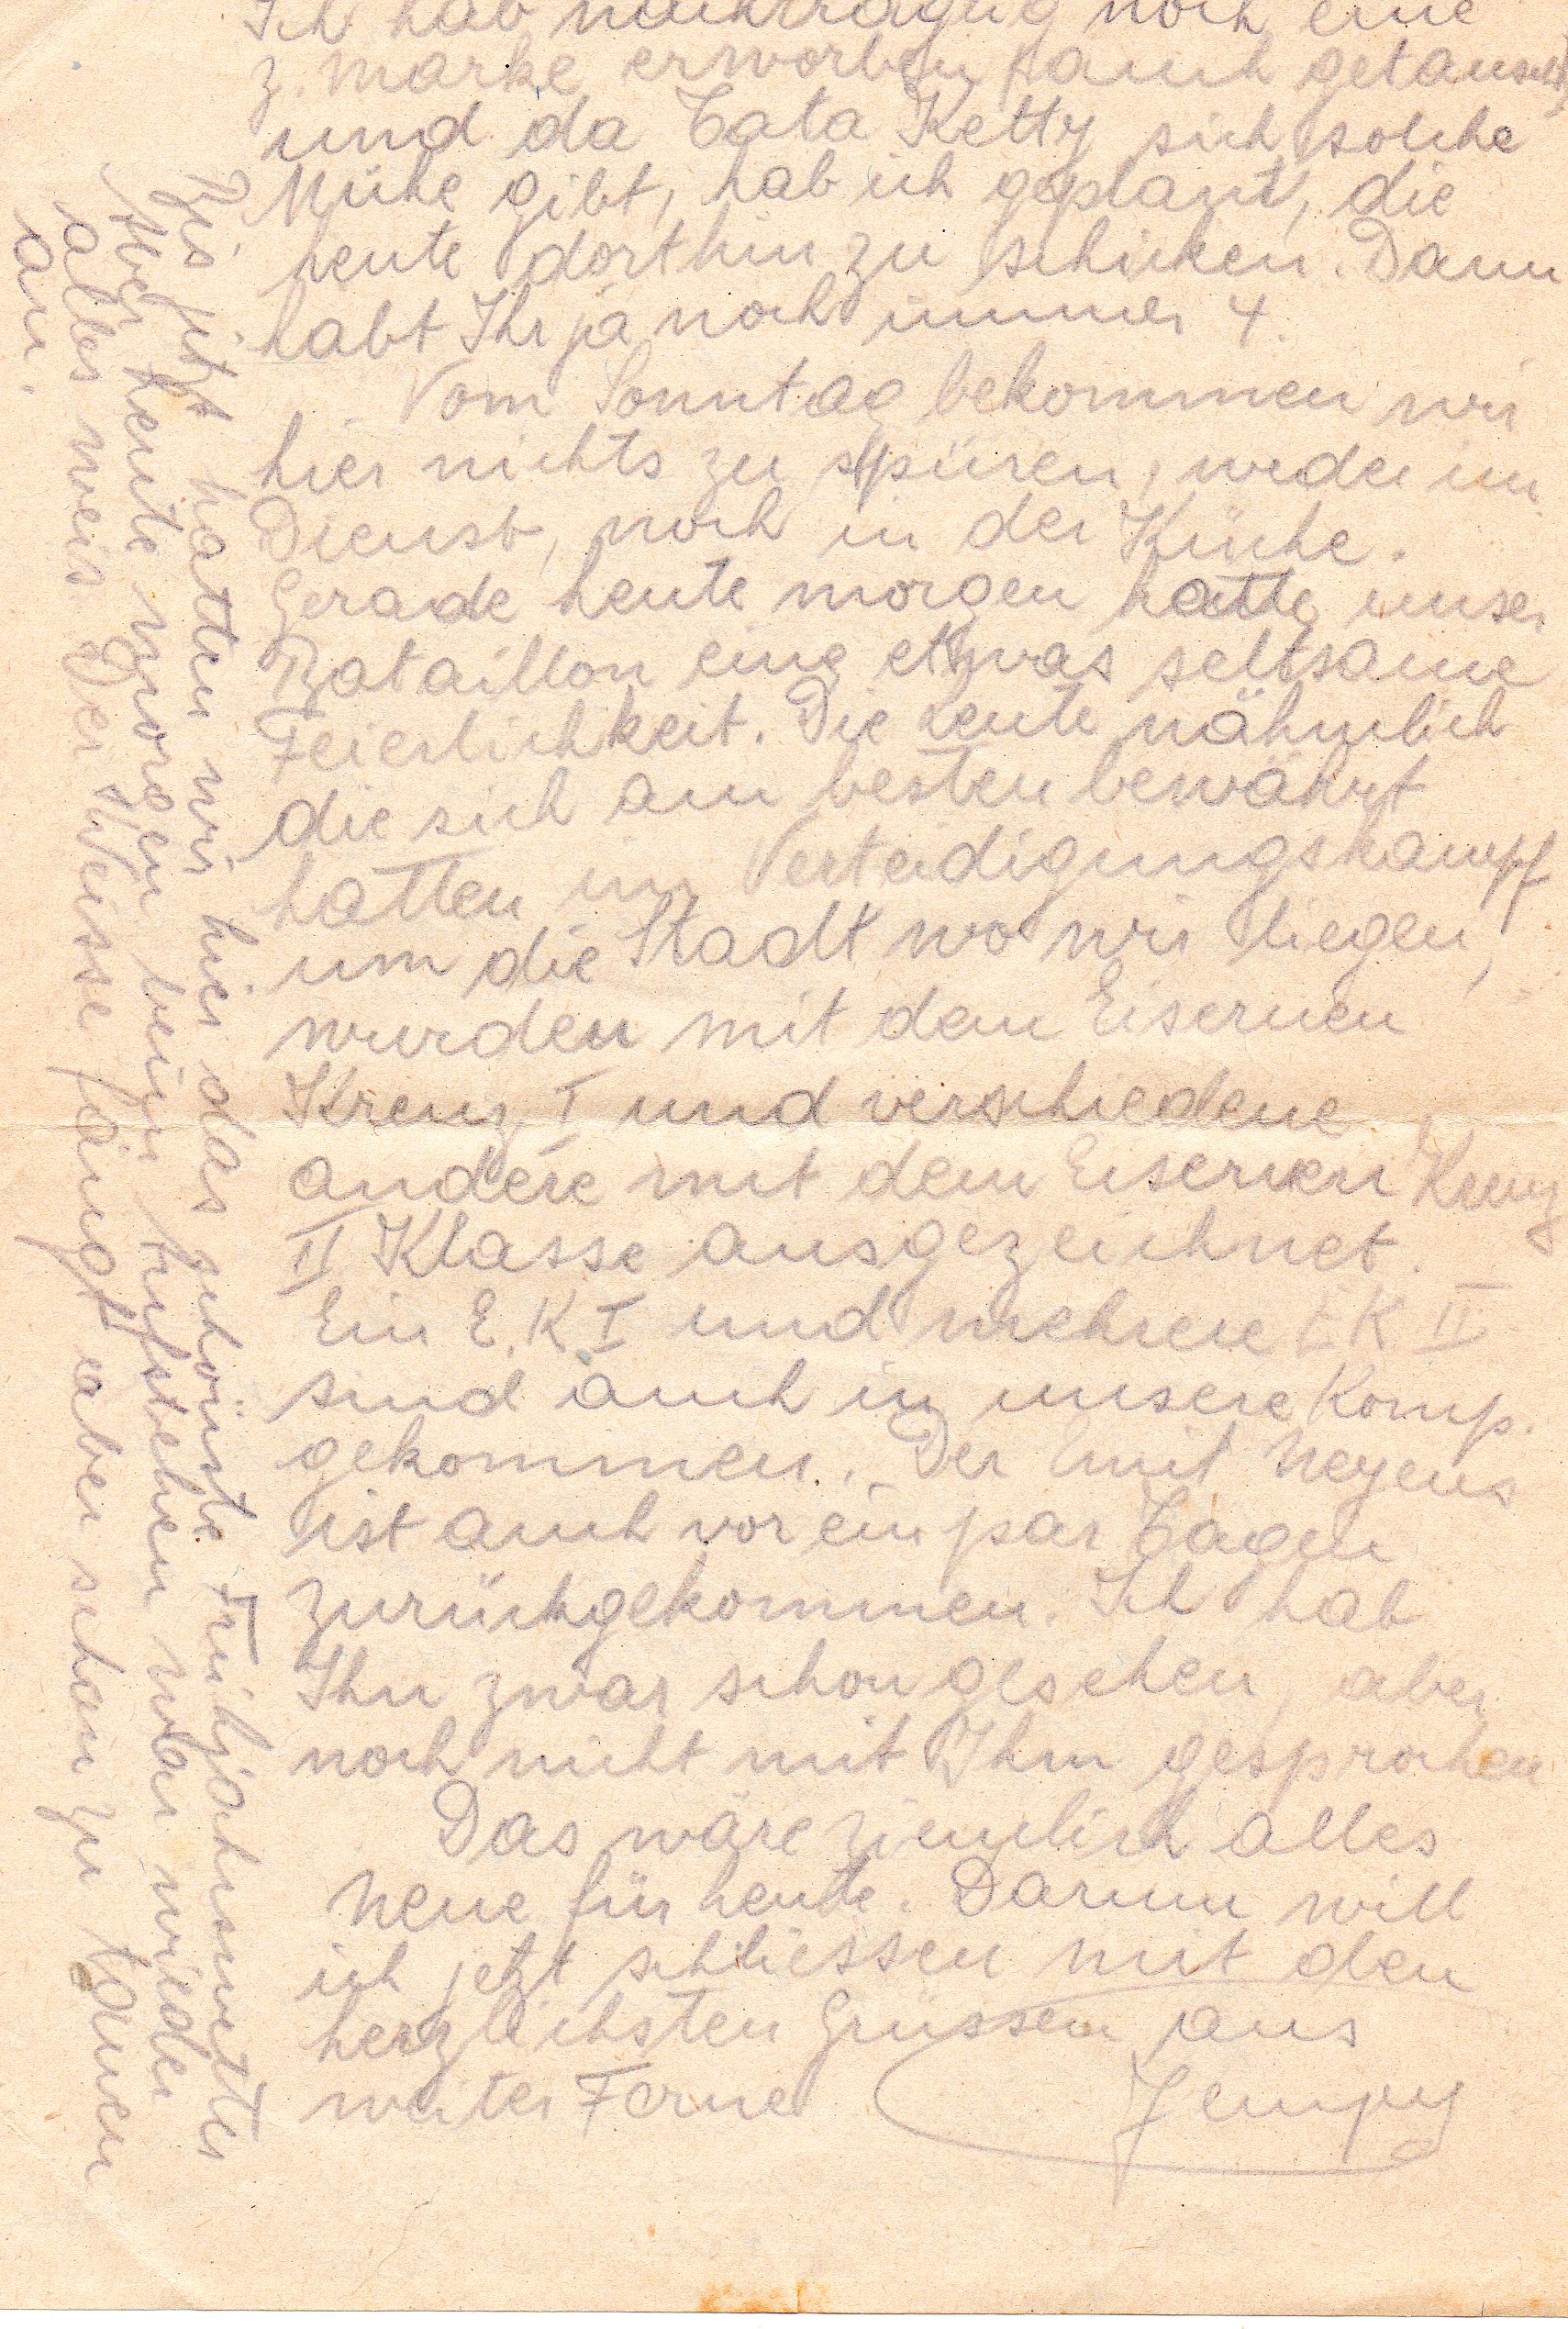 Ich hab nachträglig noch eine
z. marke erworben auch getauscht
und da Tata Ketty sich solche
Mühe gibt, hab ich geplant, die
heute dorthin zu schicken. Dann
habt Ihr ja noch immer 4.
Vom Sonntag bekommen wir
hier nichts zu spüren, weder im
Dienst, noch in der Küche.
Gerade heute morgen hatte unser
Bataillon eine etwas seltsame
Feierlichkeit. Die Leute nähmlich
die sich am besten bewährt
hatten im Verteidigungskampf
um die Stadt wo wir liegen,
wurden mit dem Eisernen
Kreuz I und verschiedene
andere mit dem Eisernen Kreuz
II Klasse ausgezeichnet.
Ein E.K I und mehrere EK II
sind auch in unsere Komp.
gekommen. Der Emil Neyens
ist auch vor ein par Tagen
zurückgekommen. Ich hab
Ihn zwar schon gesehen, aber
noch nicht mit Ihm gesprochen
Das wäre ziemlich alles
neue für heute. Darum will
ich jetzt schliessen mit den
herzlichsten Grüssen aus
weiter Ferne Jempy
Bis jetzt hatten wir hier das schönste Frühjahrswetter
Aber heute morgen beim Aufstehen war wieder
alles weis. Der Weisse fängt aber schon zu tauen
an.